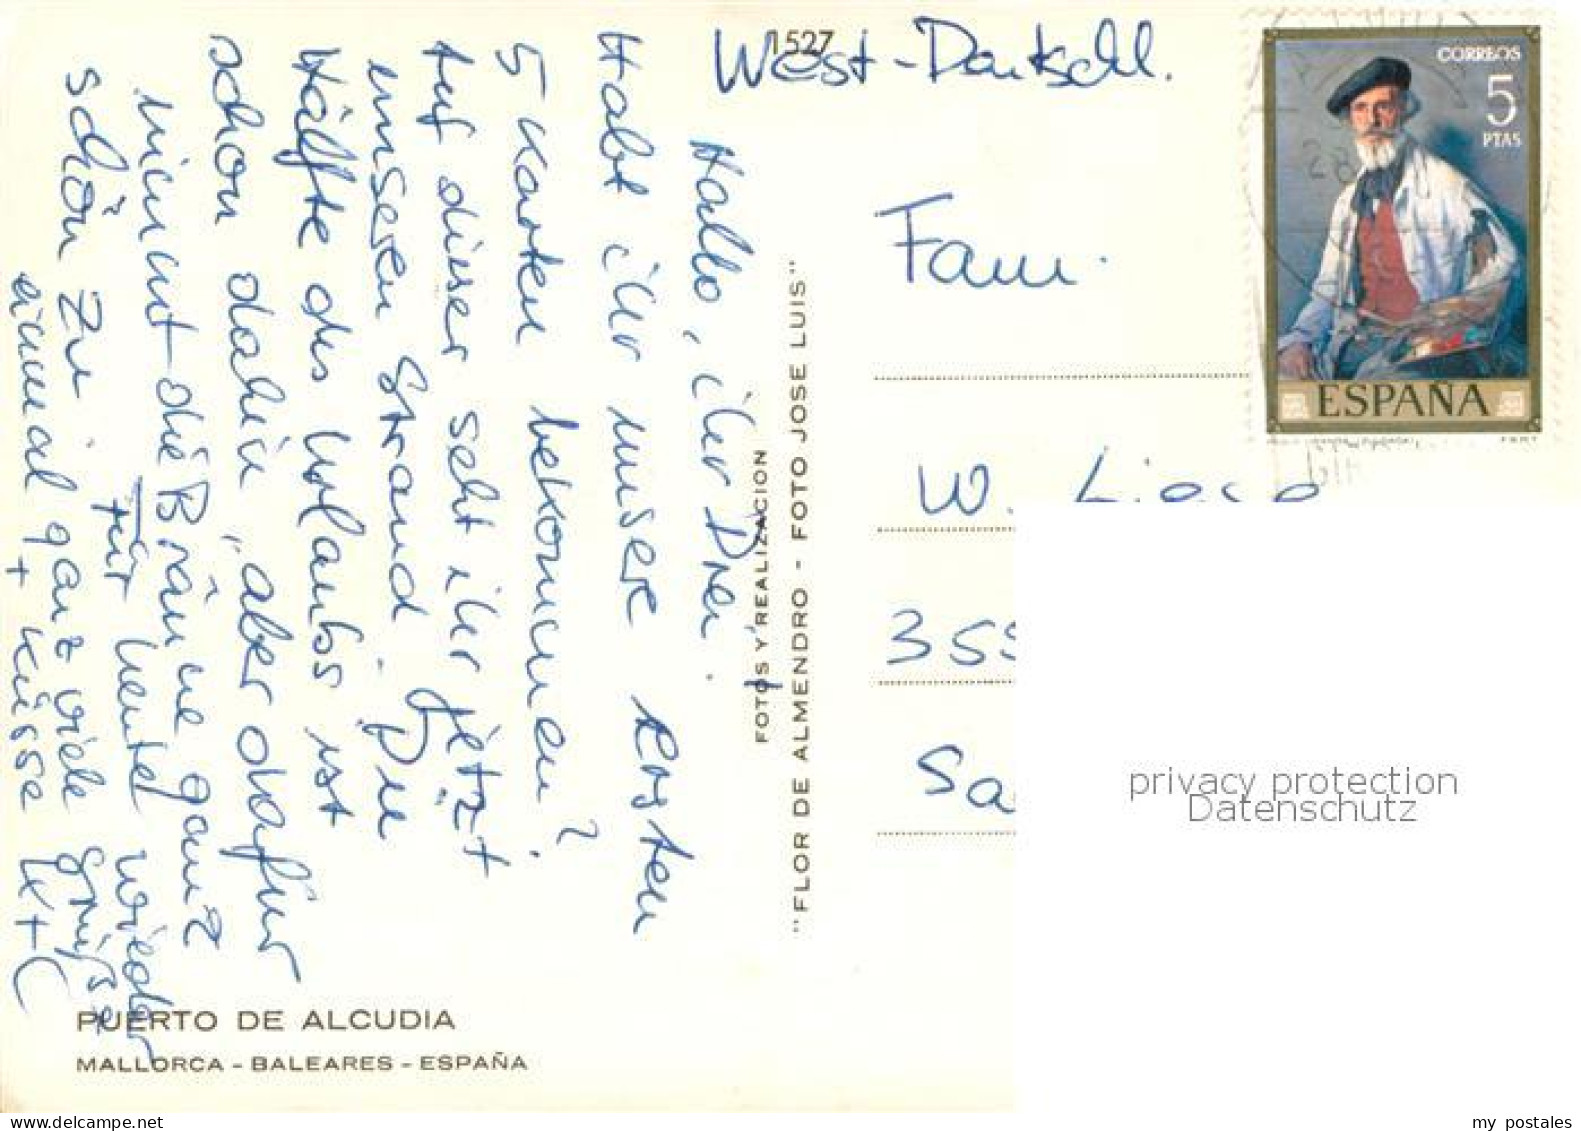 1527
West-Deutschl.
CORREOS
5
PTAS
ESPAÑA
Hallo, ihr Drei!
Habt ihr unsere ersten
5 Karten bekommen?
Auf dieser seht ihr jetzt
unseren Strand. Die
Hälfte des Urlaubs ist
schon dahin, aber dafür
nimmt die Bräune ganz
schön zu. Für heute wieder
einmal ganz viele Grüße
+ Küsse
FOTOS Y REALIZACION
"FLOR DE ALMENDRO - FOTO JOSE LUIS"
Fam.
W.
355
Sa
privacy protection
Datenschutz
PUERTO DE ALCUDIA
MALLORCA - BALEARES - ESPAÑA
my postales